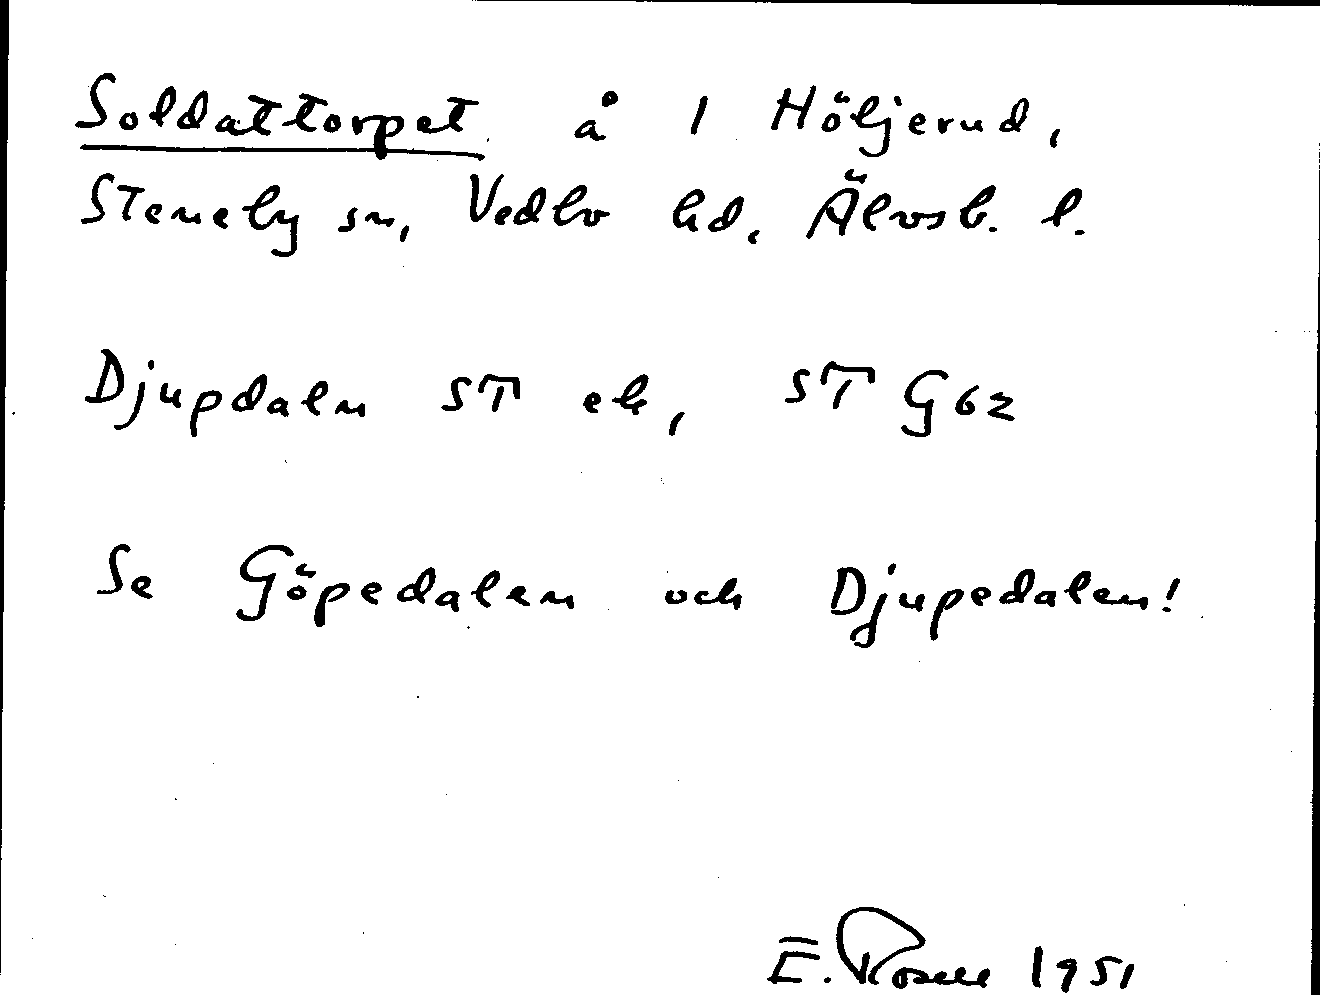 Soldattorpet å 1 Höljerud,
Steneby sn, Vedbo hd, Älvsb. l.
Djupdaln ST ek, ST G62
Se Göpedalen och Djupedalen!
E. Rosell 1951